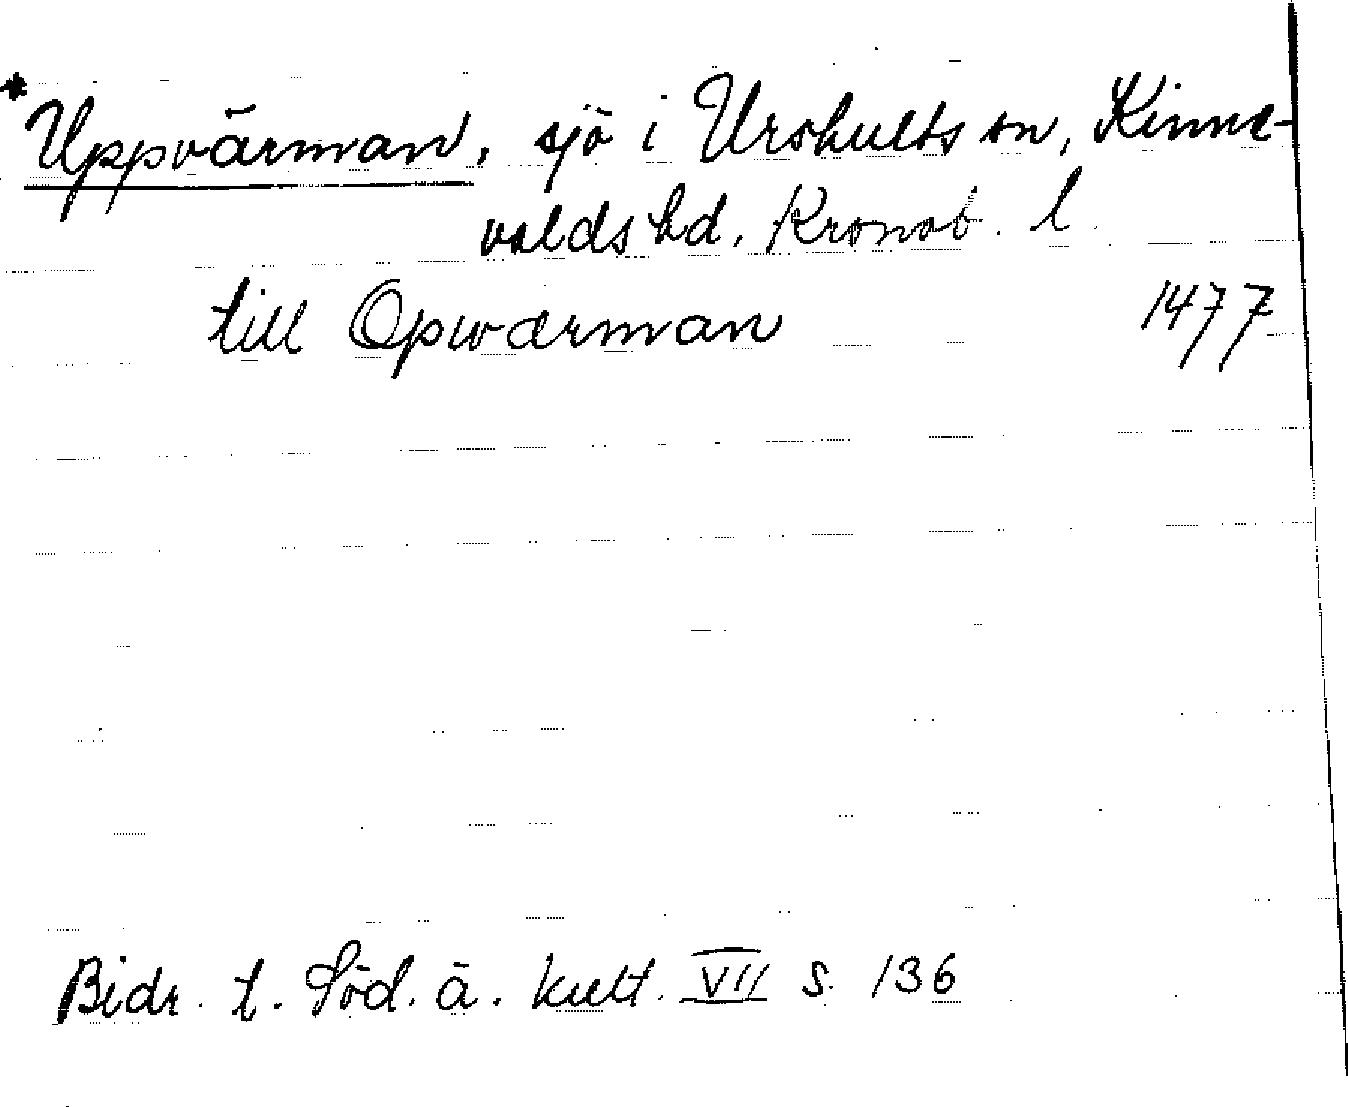 *Uppvärman, sjö i Urshults sn, Kinne-
valds hd, Kronob. l.
till Opwærman 1477
Bidr. t. Söd. ä. kult. VII s. 136